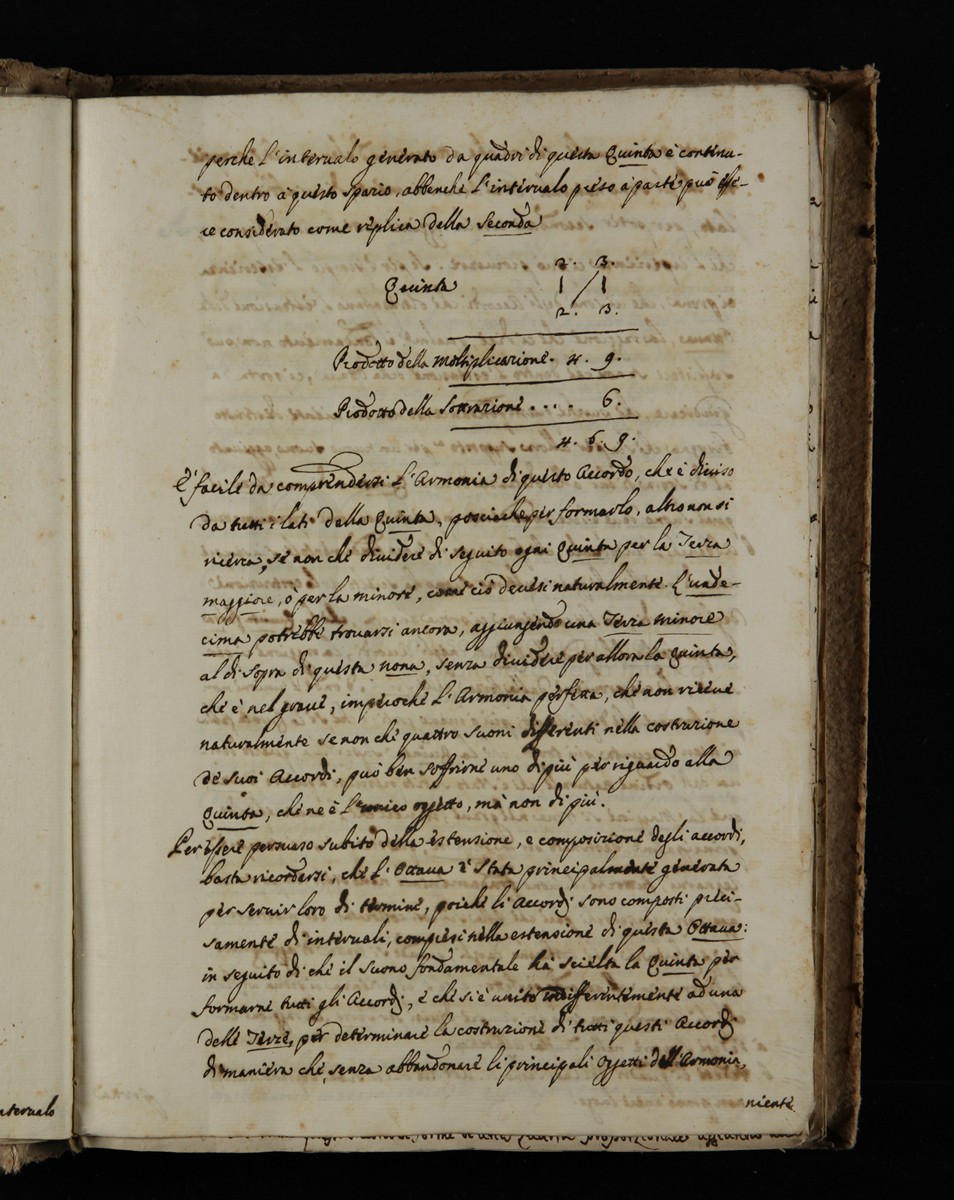 perche l'intervalo génerato da quadri di questa Quinta è continu-
to dentro à questo spazio, abbenche l'intervalo preso à parte può esse-
re considerato come replica della Seconda
2. 3.
Quinta 1 / 1
2. 3.
Prodotto della moltiplicazione. 4. 9.
Prodotto della Sottrazione .... 6.
4. 6. 9.
È facile da comprendersi l'Armonia di questo Accordo, che è diviso
da tutti i lati dalla Quinta, posciache per formarlo, altro non si
ricerca, se non che dividere di seguito ogni Quinta per la Terza
maggiore, ò per la minore, come ciò devesi naturalmente. L'unde-
cima potrebbe trovarsi ancora, aggiungendo una Terza minore
al di sopra di questa nona, senza dividere per allora la Quinta,
che è nel grave, imperoche l'Armonia perfetta, che non riceve
naturalmente se non che quattro suoni differenti nella costruzione
de suoi Accordi, può ben soffrirne uno di più per riguardo alla
Quinta, che ne è l'unico oggetto, mà non di più.
Per essere persuaso subito della estensione, e composizione degli accordi,
basta ricordarsi, che l'Ottava è stata principalmente génerata
per servir loro di termine, poiche li Accordi sono composti preci-
samente di intervali, compresi nella estensione di questa Ottava:
in seguito di che il Suono fondamentale hà scielta la Quinta per
formarne tutti gli Accordi, è che si è unito indifferentemente ad una
delle Terze, per determinare la costruzione di tutti questi Accordi
di maniera che, senza abbandonare li principali Oggetti dell'Armonia,
niente
ntervalo